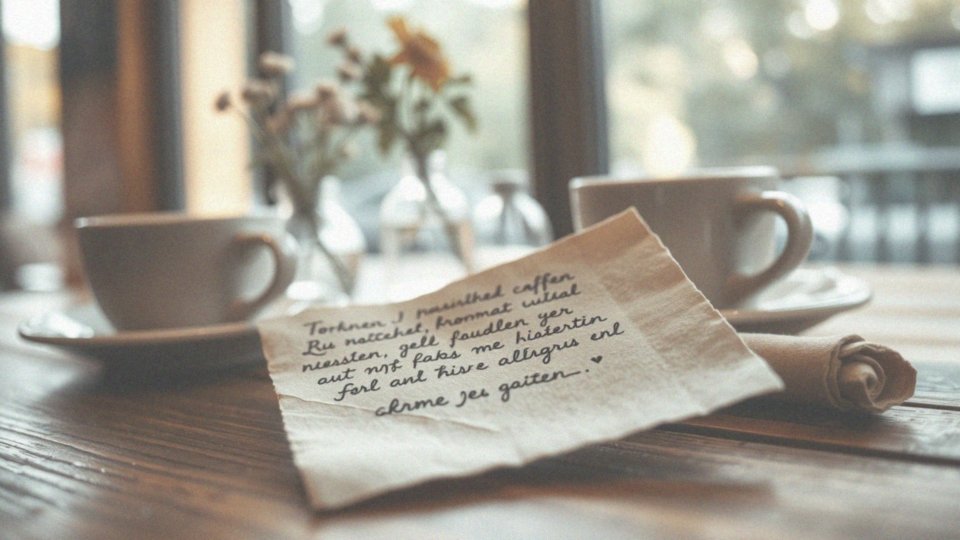 Torknen, J nasirlhed caffen
Ru nottchet, bronmat wisal
niessten, gell foudlen yer
aut nyb paks me hiotertin
forl anl hisve allgrus enl
akrme jes gaiten